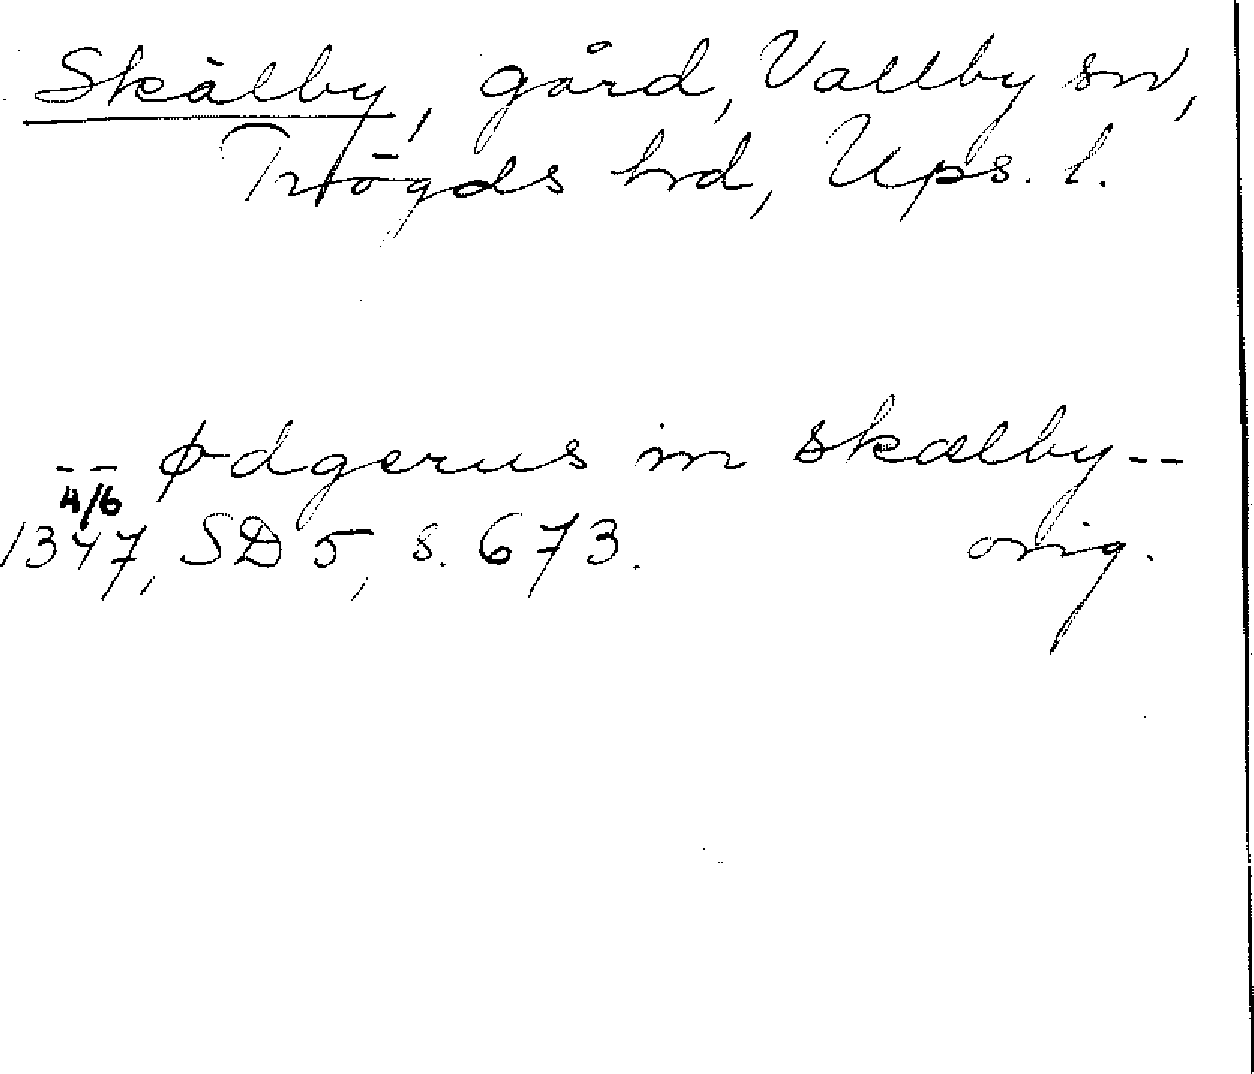 Skälby, gård, Vallby sn,
Trögds hd, Ups. l.
-- ødgerus in skælby --
4/6
1347, SD 5, s. 673. orig.